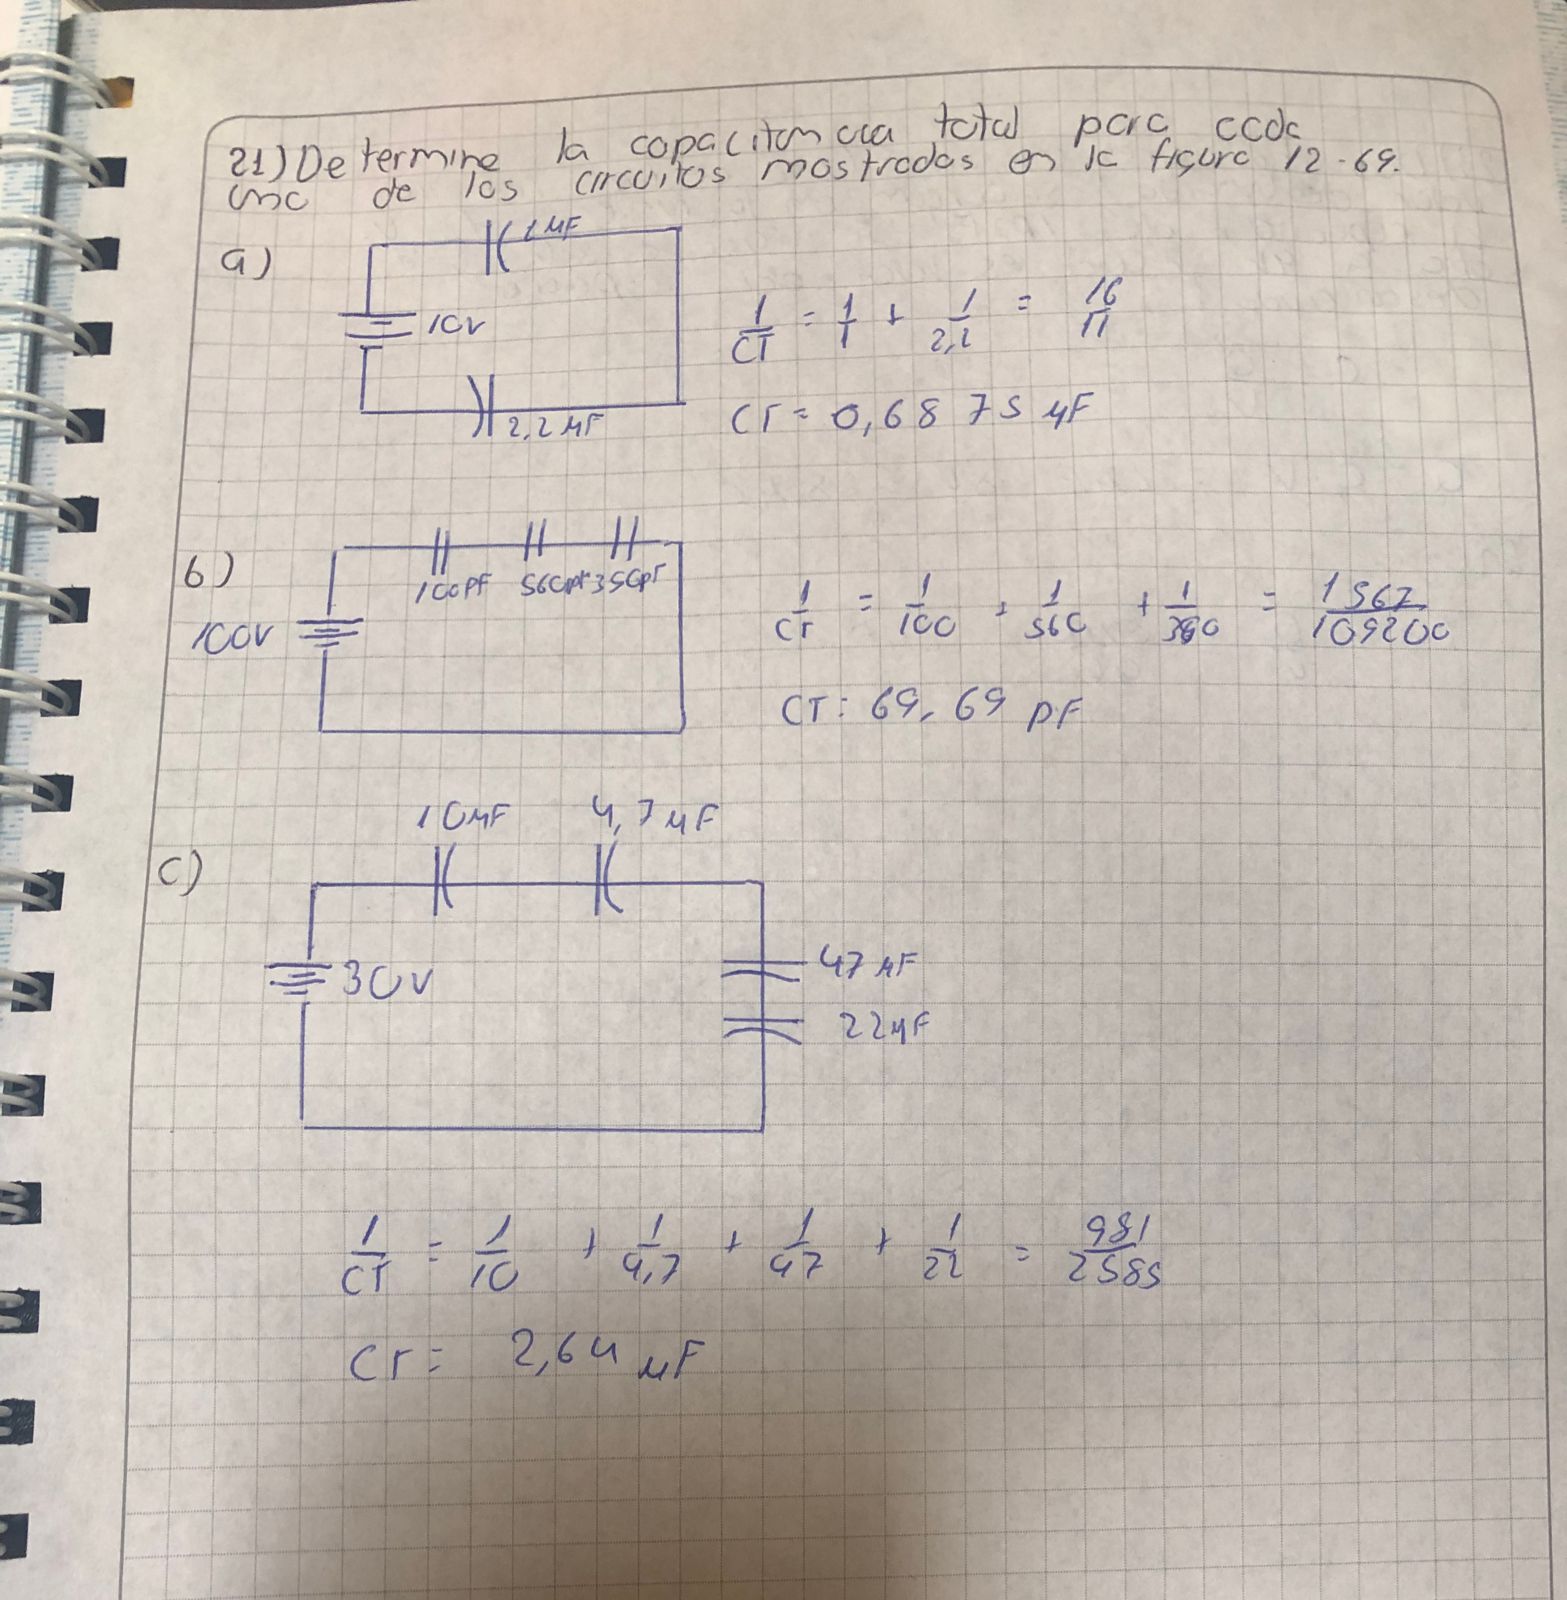 21) Determine la capacitancia total para cada
una de los circuitos mostrados en la figura 12-69.
a)
1 μF
10V
2,2 μF
1/CT = 1/1 + 1/2,2 = 16/11
CT = 0,6875 μF
b)
100pF 560pF 390pF
100V
1/CT = 1/100 + 1/560 + 1/390 = 1567/109200
CT: 69,69 pF
c)
10μF 4,7μF
30V
47μF
22μF
1/CT = 1/10 + 1/4,7 + 1/47 + 1/22 = 981/2585
CT = 2,64 μF